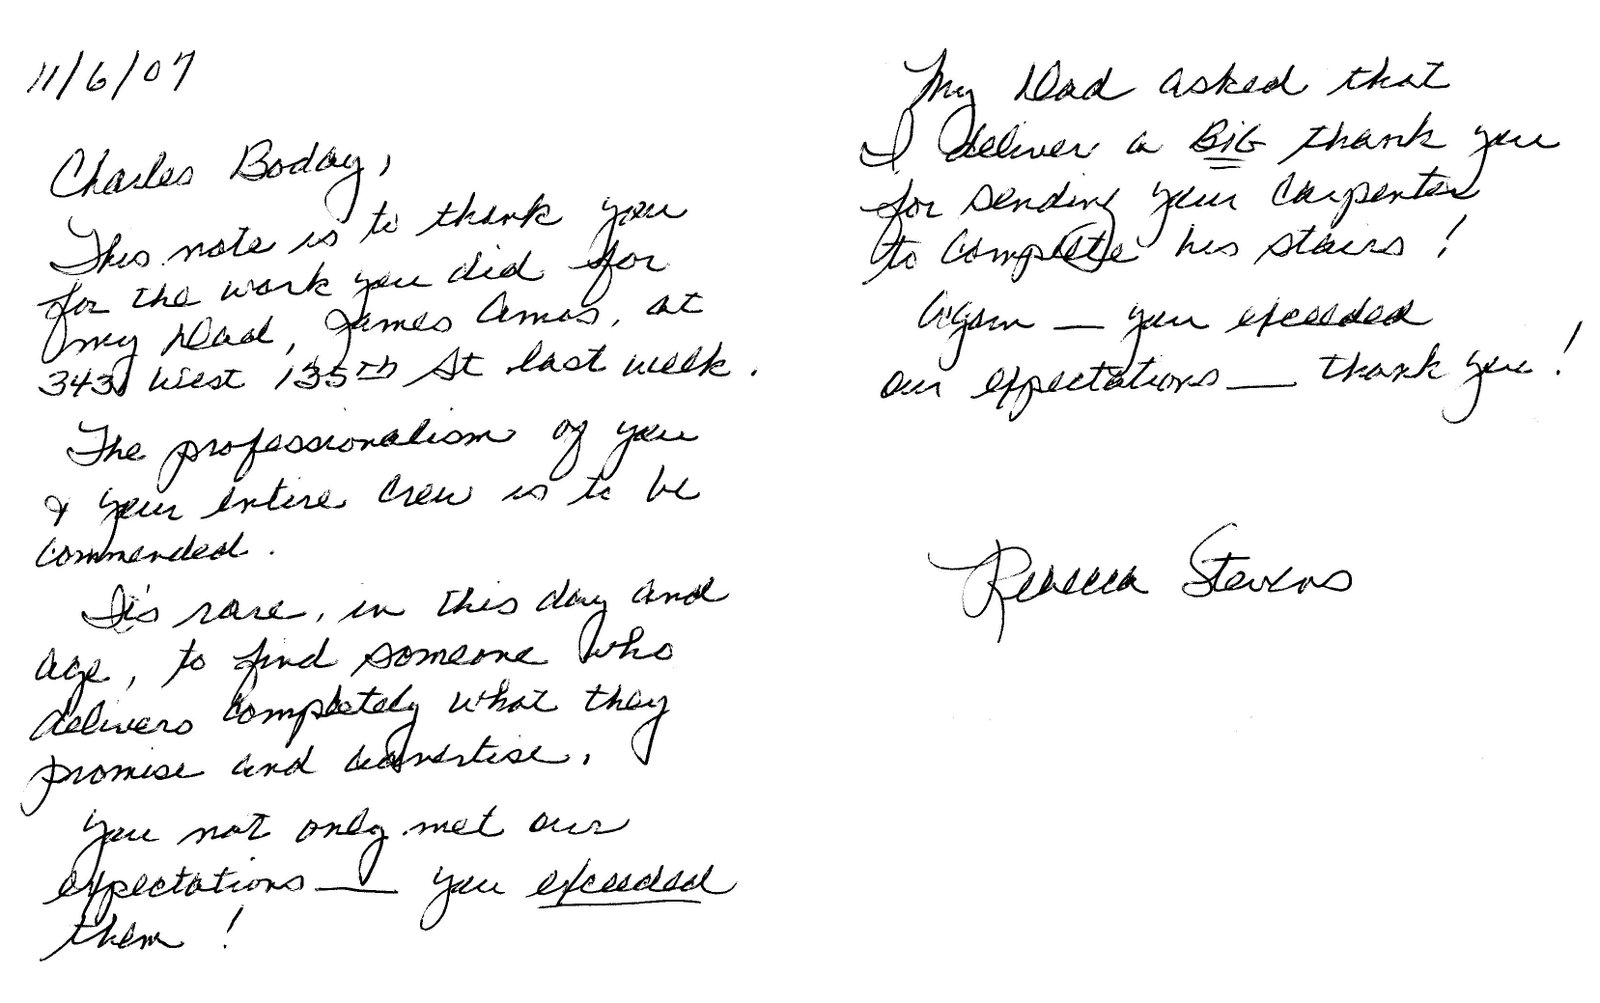 11/6/07
Charles Boday,
This note is to thank you
for the work you did for
my Dad, James Amos, at
343 West 135TH St last week.
The professionalism of you
& your entire crew is to be
commended.
It's rare, in this day and
age, to find someone who
delivers completely what they
promise and advertise.
You not only met our
expectations — you exceeded
them!
My Dad asked that
I deliver a BiG thank you
for sending your carpenter
to complete his stairs!
Again — you exceeded
our expectations — thank you!
Rebecca Stevens